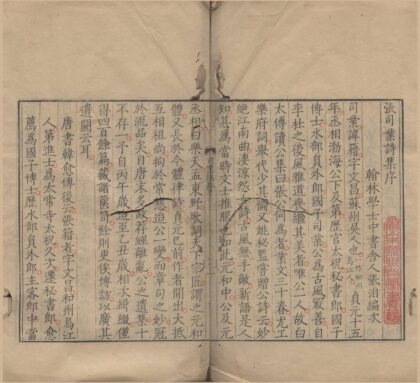 張司業詩集序
翰林學士中書舍人張洎編次
司業諱籍字文昌蘇州吳人一作和州烏江人貞元十五
年丞相渤海公下及第歷官太祝秘書郎國子
博士水部員外郎國子司業公為古風最善自
李杜之後風雅道喪繼其美者唯公一人故白
太傅讀公集曰張公何為者業文三十春尤工
樂府詞舉代少其倫又姚秘監嘗贈公詩云妙
絕江南曲淒涼怨女詩古風無敵手新語是人
知其為當時文士推服也如此元和中公及元
丞相白樂天孟東野歌詞天下宗匠謂之元和
體又長於今體律詩貞元已前作者間出大抵
互相祖尚拘於常態迨公一變而章句之妙冠
於流品矣自唐末多故存經離亂公之遺集十
不存一予自丙午歲迨至乙丑歲相次緝綴僅
得四百餘篇藏諸篋笥餘則更俟博訪以廣其
遺闕云耳
唐書韓愈傳後云張籍者字文昌和州烏江
人第進士為太常寺太祝久次遷秘書郎愈
薦為國子博士歷水部員外郎主客郎中當